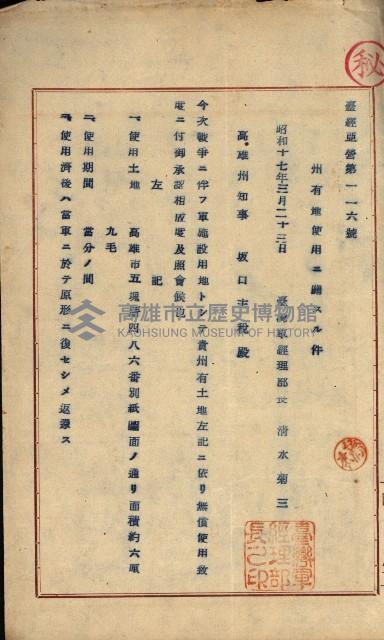 秘
臺經亞營第一一六號
州有地使用ニ關スル件
昭和十七年三月二十三日
臺灣軍經理部長 清水菊三
高雄州知事 坂口主税殿
今次戰爭ニ伴フ軍施設用地トシテ貴州有土地左記ニ依リ無償使用致
度ニ付御承認相成度及照會候也
左記
一、使用土地 高雄市五塊厝四八六番別紙圖面ノ通リ面積約六厘
九毛
二、使用期間 當分ノ間
三、使用濟後ハ當軍ニ於テ原形ニ復セシメ返還ス
臺灣軍
經理部
長之印
高雄市立歷史博物館
KAOHSIUNG MUSEUM OF HISTORY